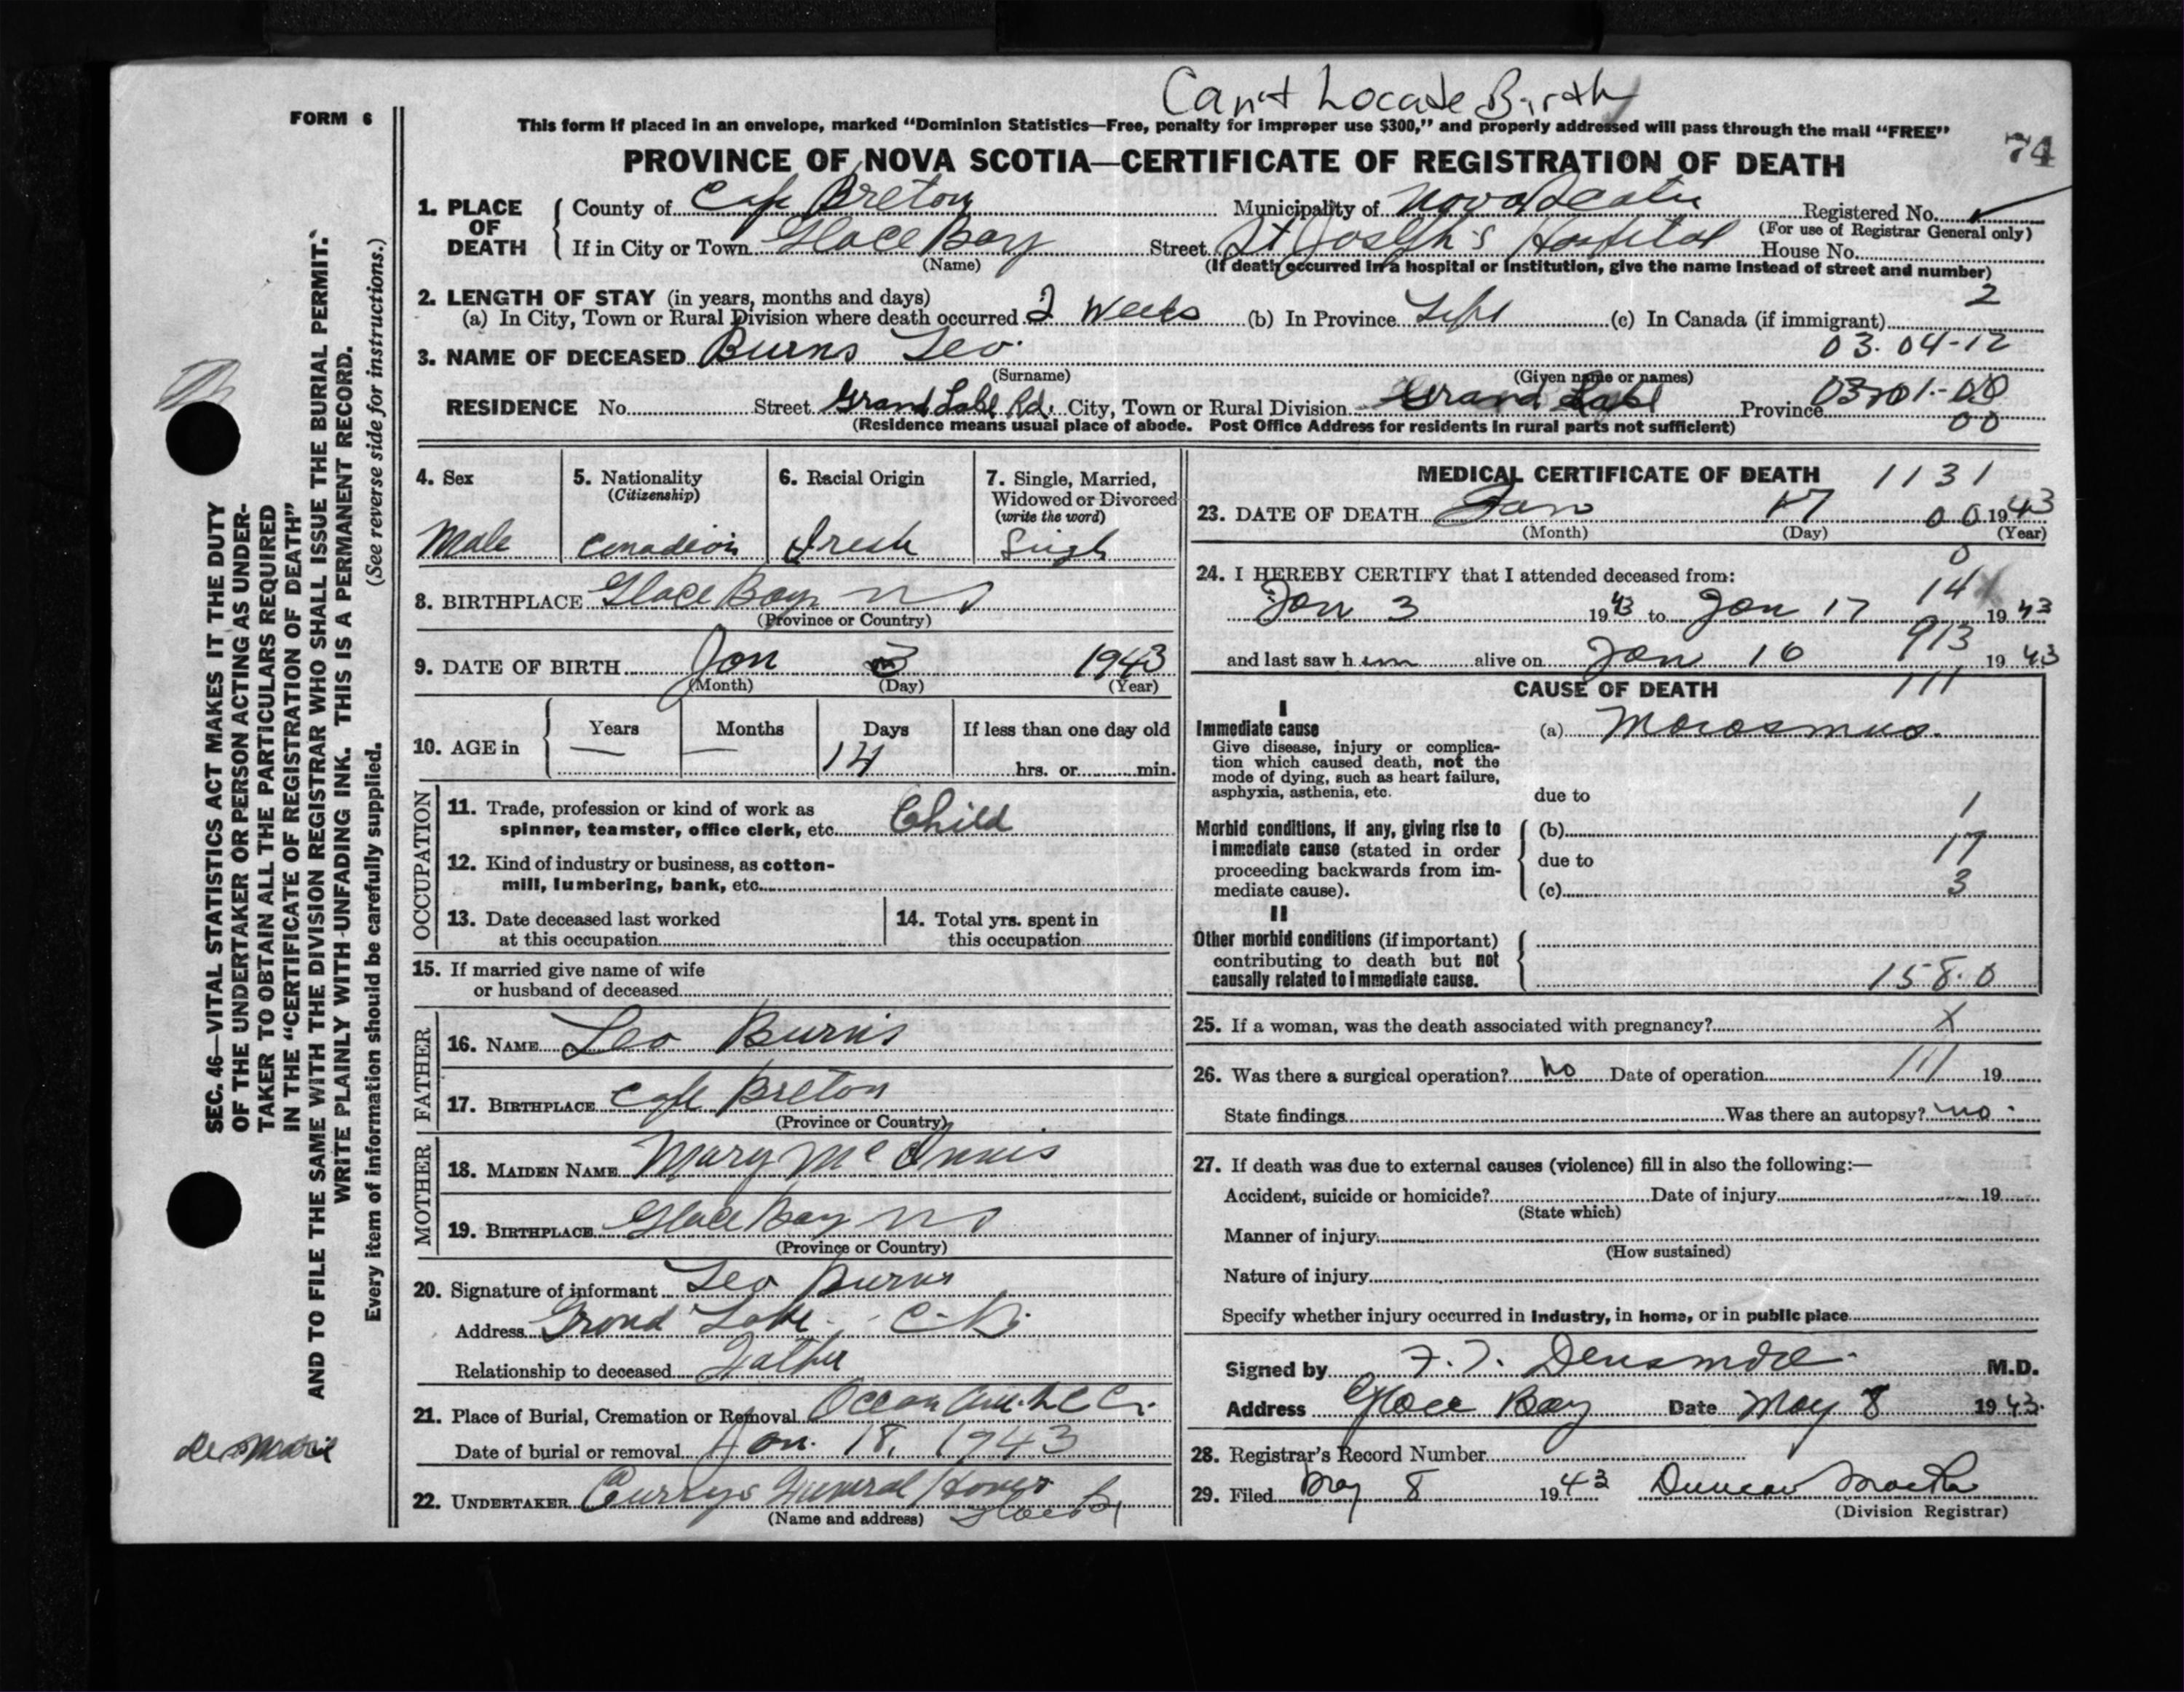 Can't Locate Birth
FORM 6
This form if placed in an envelope, marked “Dominion Statistics—Free, penalty for improper use $300,” and properly addressed will pass through the mail “FREE”
74
PROVINCE OF NOVA SCOTIA—CERTIFICATE OF REGISTRATION OF DEATH
1. PLACE OF DEATH
County of Cape Breton Municipality of Nova Scotia Registered No.
(For use of Registrar General only)
If in City or Town Glace Bay Street St Joseph's Hospital House No.
(Name) (If death occurred in a hospital or institution, give the name instead of street and number)
2. LENGTH OF STAY (in years, months and days)
2
(a) In City, Town or Rural Division where death occurred 2 Weeks (b) In Province Life (c) In Canada (if immigrant)
3. NAME OF DECEASED Burns Leo. 03.04-12
(Surname) (Given name or names)
RESIDENCE No. Street Grand Lake Rd. City, Town or Rural Division Grand Lake Province
00
(Residence means usual place of abode. Post Office Address for residents in rural parts not sufficient)
4. Sex
Male
5. Nationality
(Citizenship)
Canadian
6. Racial Origin
Irish
7. Single, Married,
Widowed or Divorced
(write the word)
Singl
8. BIRTHPLACE Glace Bay NS
(Province or Country)
9. DATE OF BIRTH Jan 3 1943
(Month) (Day) (Year)
10. AGE in
Years Months Days If less than one day old
— — 14 hrs. or min.
OCCUPATION
11. Trade, profession or kind of work as
spinner, teamster, office clerk, etc. Child
12. Kind of industry or business, as cotton-
mill, lumbering, bank, etc.
13. Date deceased last worked
at this occupation
14. Total yrs. spent in
this occupation
15. If married give name of wife
or husband of deceased
FATHER
16. NAME Leo Burns
17. BIRTHPLACE Cape Breton
(Province or Country)
MOTHER
18. MAIDEN NAME Mary McInnis
19. BIRTHPLACE Glace Bay NS
(Province or Country)
20. Signature of informant Leo Burns
Address Grand Lake C-B.
Relationship to deceased Father
21. Place of Burial, Cremation or Removal Ocean Ave.
Date of burial or removal Jan. 18, 1943
22. UNDERTAKER Currys Funeral Home
(Name and address) Glace By
MEDICAL CERTIFICATE OF DEATH 1131
23. DATE OF DEATH Jan 17 00 1943
(Month) (Day) (Year)
0
24. I HEREBY CERTIFY that I attended deceased from:
14
Jan 3 1943 to Jan 17 1943
913
and last saw him alive on Jan 16 1943
CAUSE OF DEATH 111
I
Immediate cause (a) Marasmus.
Give disease, injury or complica-
tion which caused death, not the
mode of dying, such as heart failure,
asphyxia, asthenia, etc.
due to
1
Morbid conditions, if any, giving rise to (b)
immediate cause (stated in order 17
proceeding backwards from im- due to
mediate cause). (c) 3
II
Other morbid conditions (if important)
contributing to death but not
causally related to immediate cause. 158.0
25. If a woman, was the death associated with pregnancy? X
26. Was there a surgical operation? no Date of operation 111 19
State findings Was there an autopsy? no.
27. If death was due to external causes (violence) fill in also the following:—
Accident, suicide or homicide? Date of injury 19
(State which)
Manner of injury
(How sustained)
Nature of injury
Specify whether injury occurred in industry, in home, or in public place
Signed by F. T. Densmore M.D.
Address Glace Bay Date May 8 1943.
28. Registrar's Record Number
29. Filed May 8 1943 Duncan
(Division Registrar)
SEC. 46—VITAL STATISTICS ACT MAKES IT THE DUTY
OF THE UNDERTAKER OR PERSON ACTING AS UNDER-
TAKER TO OBTAIN ALL THE PARTICULARS REQUIRED
IN THE “CERTIFICATE OF REGISTRATION OF DEATH”
AND TO FILE THE SAME WITH THE DIVISION REGISTRAR WHO SHALL ISSUE THE BURIAL PERMIT.
WRITE PLAINLY WITH UNFADING INK. THIS IS A PERMANENT RECORD.
Every item of information should be carefully supplied. (See reverse side for instructions.)